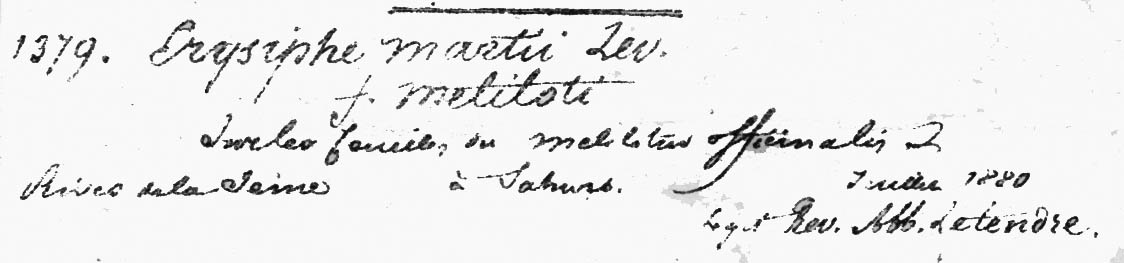 1379. Erysiphe martii Lev.
f. Meliloti
Sur les feuilles du melilotus officinalis L
Rives de la Seine à Sahurs. Juillet 1880
Legit Rev. Abb. Letendre.